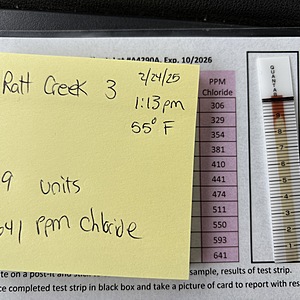 #A4290A, Exp. 10/2026
Ratt Creek 3
2/24/25
1:13 pm
55° F
9 units
641 ppm chloride
PPM
Chloride
306
329
354
381
410
441
474
511
550
593
641
QUANTAB
8
7
6
5
4
3
2
1
sample, results of test strip.
ce completed test strip in black box and take a picture of card to report with res